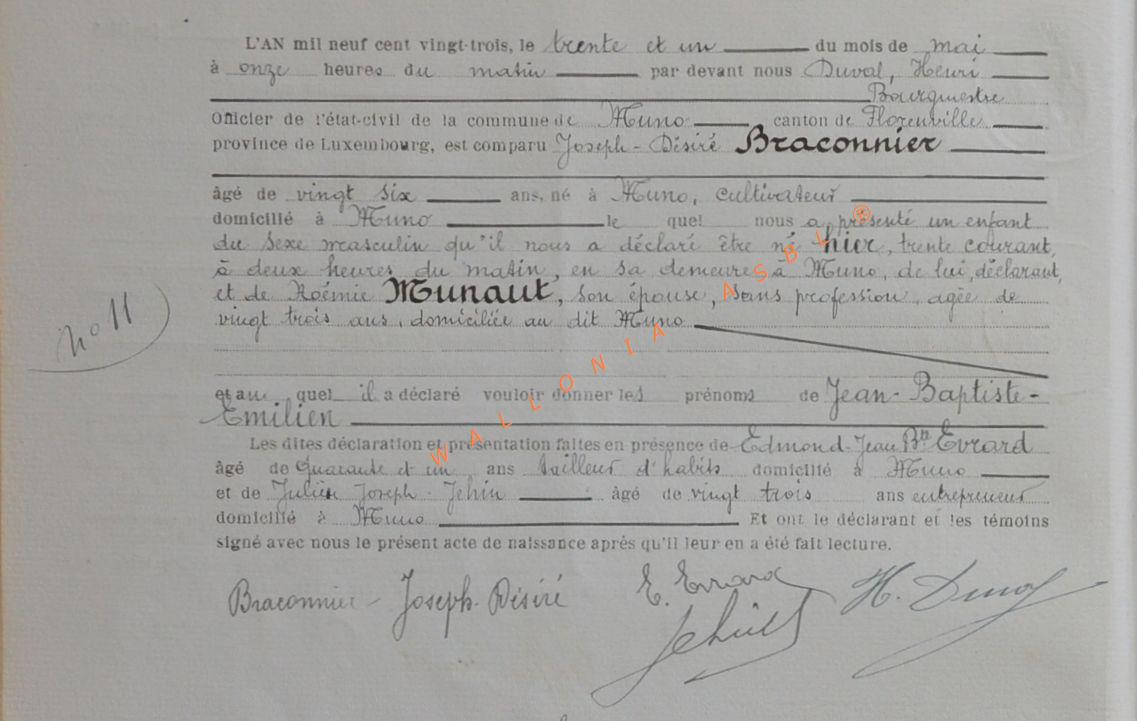 L'AN mil neuf cent vingt-trois, le trente et un du mois de mai
à onze heures du matin par devant nous Duval, Henri
Bourgmestre
Officier de l'état-civil de la commune de Muno canton de Florenville
province de Luxembourg, est comparu Joseph-Désiré Braconnier
âgé de vingt six ans, né à Muno, cultivateur
domicilié à Muno le quel nous a présenté un enfant
du sexe masculin qu'il nous a déclaré être né hier, trente courant,
à deux heures du matin, en sa demeure à Muno, de lui, déclarant,
et de Noémie Munaut, son épouse, sans profession, agée de
vingt trois ans, domiciliée au dit Muno
no 11
et au quel il a déclaré vouloir donner les prénoms de Jean-Baptiste-
Emilien
Les dites déclaration et présentation faites en présence de Edmond-Jean Bte Evrard
âgé de Quarante et un ans tailleur d'habits domicilié à Muno
et de Julien Joseph Jehin âgé de vingt trois ans entrepreneur
domicilié à Muno Et ont le déclarant et les témoins
signé avec nous le présent acte de naissance après qu'il leur en a été fait lecture.
Braconnier - Joseph-Désiré E. Evrard H. Duval
Jehin
WALLONIA ASBL ®